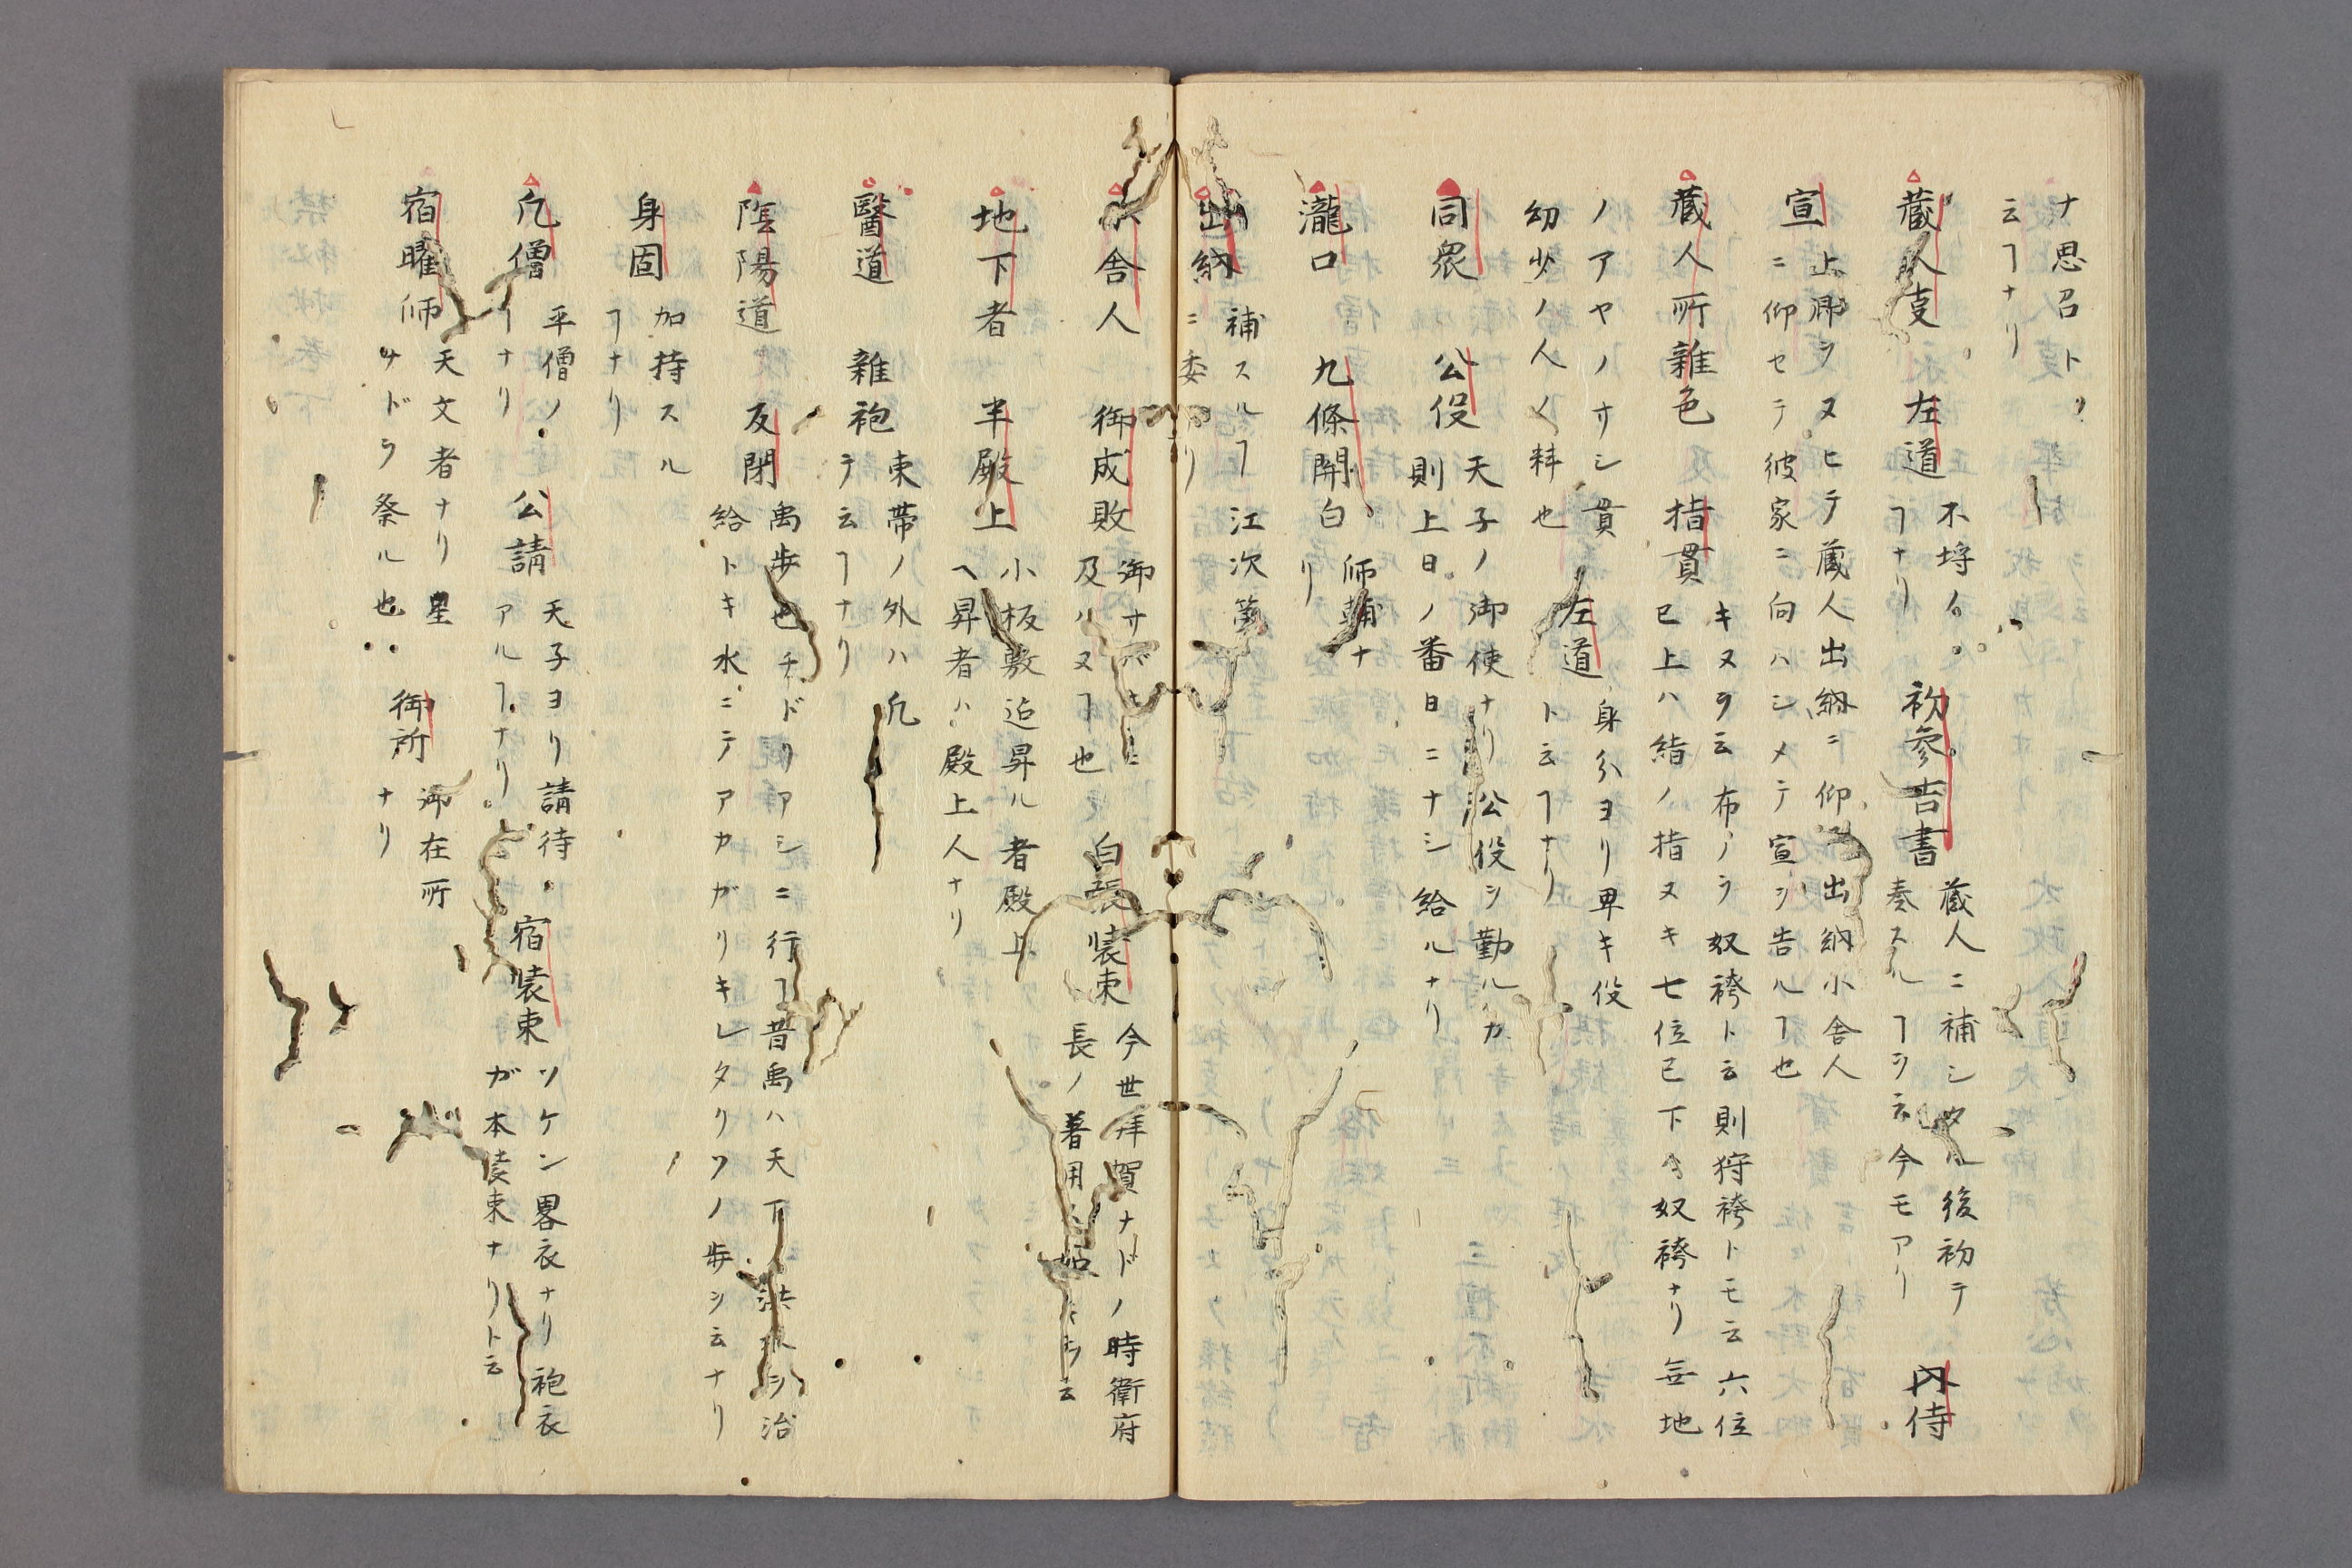 ナ思召ト
云ヿナリ
蔵人叓 左道 不埒ノ
ヿナリ 初參吉書 蔵人ニ補シタル後初テ
奏スルヿヲ云今モアリ 内侍
宣 上卿ヲヌヒテ蔵人出納ニ仰出納小舎人
ニ仰セテ彼家ニ向ハシメテ宣ヲ告ルヿ也
蔵人所雜色 指貫 キヌヲ云布ノヲ奴袴ト云則狩袴トモ云六位
已上ハ綾ノ指ヌキ七位已下ハ奴袴ナリ無地
ノアヤノサシ貫 左道 身分ヨリ卑キ役
幼少ノ人〱料也 ト云ヿナリ
同衆 公役 天子ノ御使ナリ公役ヲ勤ルカ
則上日ノ番日ニナシ給ルナリ
瀧口 九條關白 師輔ナ
リ
出納 補スルヿ江次第
ニ委
小舎人 御成敗 御サバキニ
及ハヌヿ也 白張装束 今世拜賀ナドノ時衛府
長ノ着用
地下者 半殿上 小板敷迄昇ル者殿上
ヘ昇者ハ殿上人ナリ
醫道 雜袍 束帯ノ外ハ凢
テ云ヿナリ
陰陽道 反閇 禹歩也チドリアシニ行ヿ昔禹ハ天下洪水ヲ治
給トキ水ニテアカガリキレタリソノ歩ヲ云ナリ
身固 加持スル
ヿナリ
凢僧 平僧ノ
ヿナリ 公請 天子ヨリ請待
アルヿナリ 宿装束 ソケン畧衣ナリ袍衣
ガ本装束ナリト云
宿曜師 天文者ナリ星
ナドヲ祭ル也 御所 御在所
ナリ